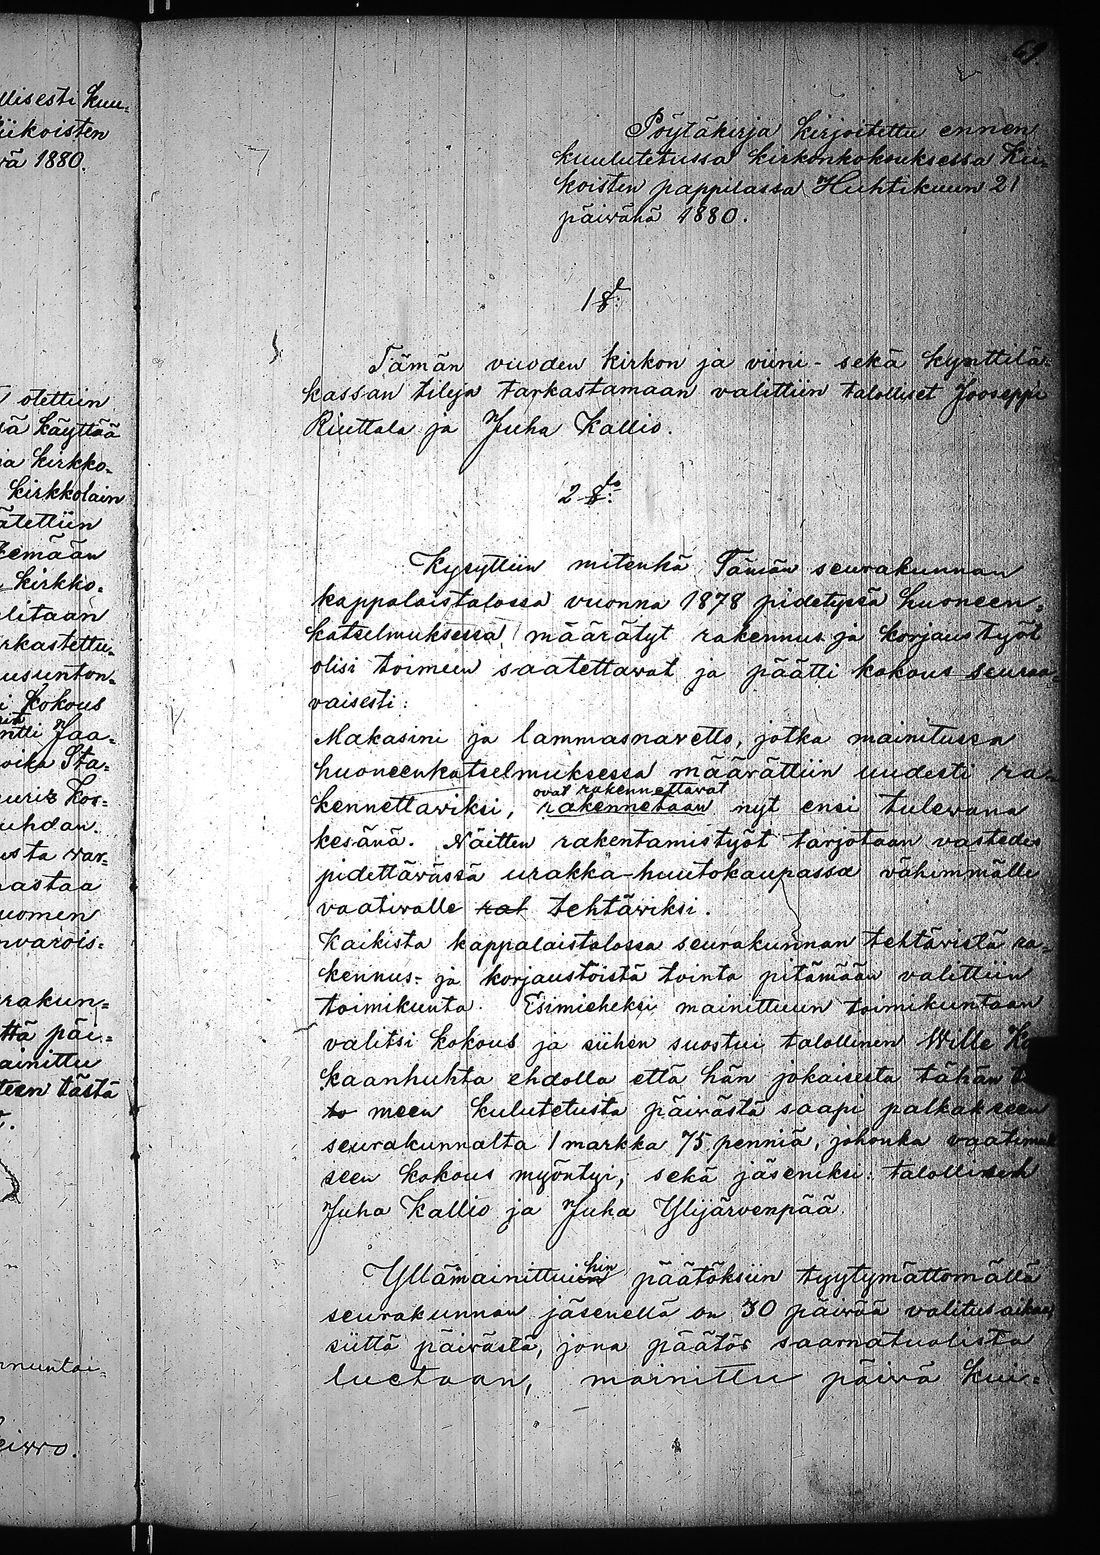 llisesti kuu=
iikoisten
vä 1880.
otettiin
sä käyttää
ia kirkko-
kirkkolain
ätettiin
temään
kirkko-
litaan
rkastettu-
usunton-
i kokous
ntti Jaa=
oika Sta-
uriz Kos-
uhdan.
usta war-
nastaa
uomen
nvarois-
rakun=
ttä päi-
ainittu
teen tästä
nnuntai-
69.
Pöytäkirja kirjoitettu ennen
kuulutetussa kirkonkokouksessa Kii-
koisten pappilassa Huhtikuun 21
päivänä 1880.
1 §
Tämän vuoden kirkon ja viini- sekä kynttilä-
kassan tilejä tarkastamaan valittiin talolliset Jooseppi
Riuttala ja Juha Kallio.
2 §
Kysyttiin mitenkä Tämän seurakunnan
kappalaistalossa vuonna 1878 pidetyssä huoneen=
katselmuksessa määrätyt rakennus ja korjaustyöt
olisi toimeen saatettavat ja päätti kokous seuraa=
vaisesti:
Makasini ja lammasnavetto, jotka mainitussa
huoneenkatselmuksessa määrättiin uudesti ra-
ovat rakennettavat
kennettaviksi, rakennetaan nyt ensi tulevana
kesänä. Näitten rakentamistyöt tarjotaan vastedes
pidettävässä urakka-huutokaupassa vähimmälle
vaativalle rat tehtäviksi.
Kaikista kappalaistalossa seurakunnan tehtävistä ra=
kennus- ja korjaustöistä tointa pitämään valittiin
toimikunta. Esimieheksi mainittuun toimikuntaan
valitsi kokous ja siihen suostui talollinen Wille Ko
kaanhuhta ehdolla että hän jokaisesta tähän
to meen kulutetusta päivästä saapi palkakseen
seurakunnalta 1 markka 75 penniä, johonka vaatimuk
seen kokous myöntyi; sekä jäseniksi: talolliset
Juha Kallio ja Juha Ylijärvenpää.
hin
Yllämainittuin päätöksiin tyytymättömällä
seurakunnan jäsenellä on 30 päivää valitusaikaa,
siittä päivästä, jona päätös saarnatuolista
luetaan, mainittu päivä kui=